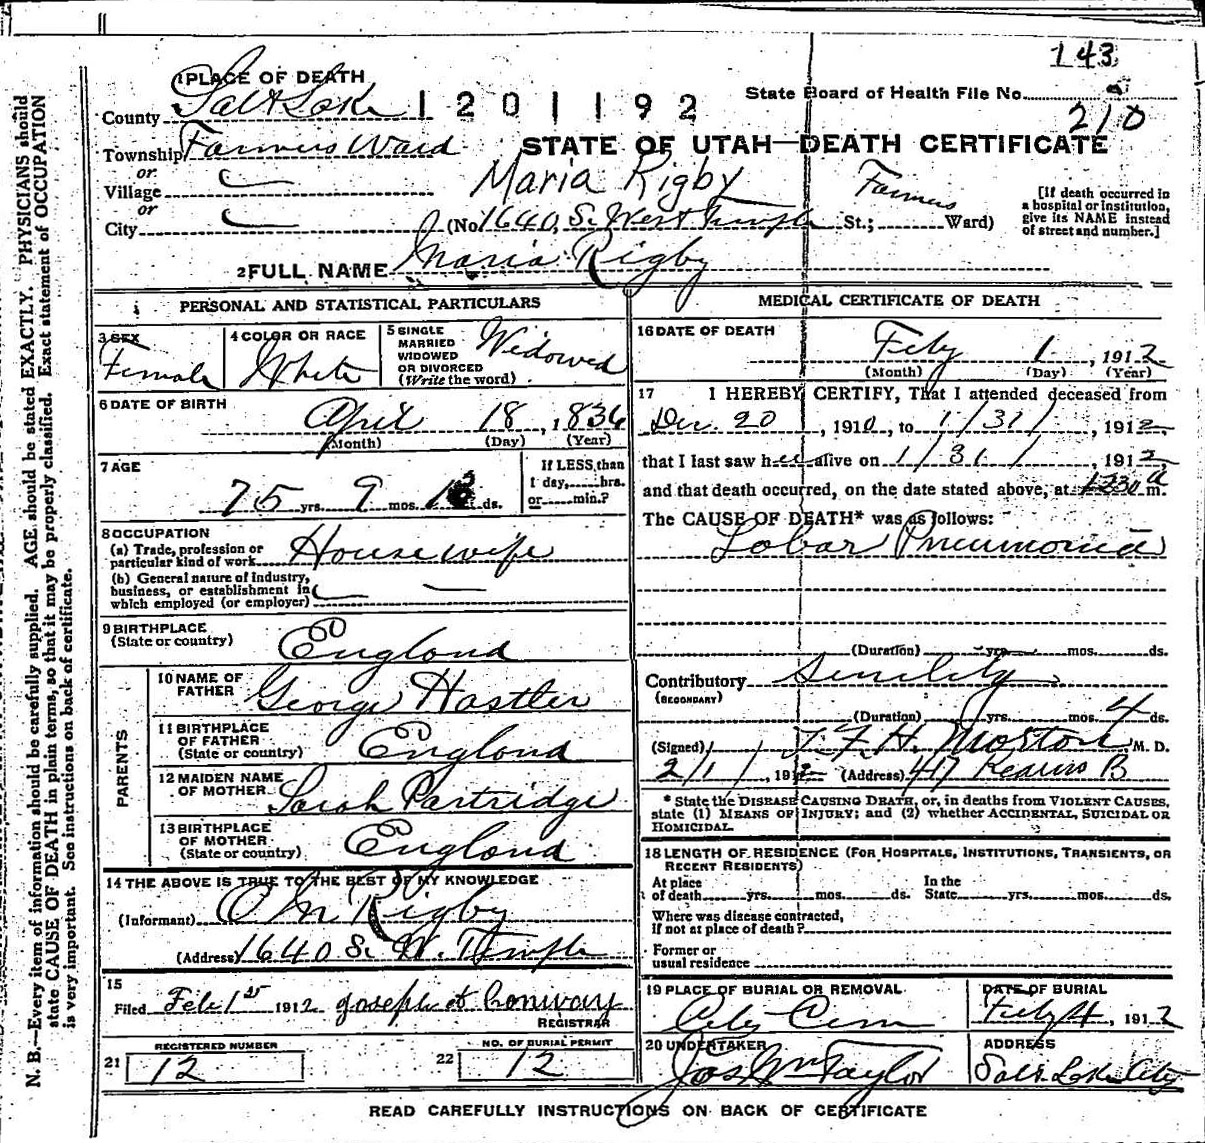 143
1 PLACE OF DEATH
County Salt Lake 1201192 State Board of Health File No.
210
Township Farmers Ward STATE OF UTAH—DEATH CERTIFICATE
or
Village Maria Rigby
or
City (No 1640 So. West Temple St.; Farmers Ward)
[If death occurred in a hospital or institution, give its NAME instead of street and number.]
2 FULL NAME Maria Rigby
PERSONAL AND STATISTICAL PARTICULARS
3 SEX Female
4 COLOR OR RACE White
5 SINGLE MARRIED WIDOWED OR DIVORCED (Write the word) Widowed
6 DATE OF BIRTH April 18, 1836
(Month) (Day) (Year)
7 AGE 75 yrs. 9 mos. 13 ds.
If LESS than 1 day, hrs. or min.?
8 OCCUPATION
(a) Trade, profession or particular kind of work House wife
(b) General nature of industry, business, or establishment in which employed (or employer)
9 BIRTHPLACE (State or country) England
PARENTS
10 NAME OF FATHER George Hastler
11 BIRTHPLACE OF FATHER (State or country) England
12 MAIDEN NAME OF MOTHER Sarah Partridge
13 BIRTHPLACE OF MOTHER (State or country) England
14 THE ABOVE IS TRUE TO THE BEST OF MY KNOWLEDGE
(Informant) O M Rigby
(Address) 1640 So. W. Temple
15
Filed Feb 1st 1912 Joseph Conway
REGISTRAR
REGISTERED NUMBER
21 12
NO. OF BURIAL PERMIT
22 12
MEDICAL CERTIFICATE OF DEATH
16 DATE OF DEATH
Feby 1, 1912
(Month) (Day) (Year)
17 I HEREBY CERTIFY, That I attended deceased from
Dec. 20, 1910, to 1/31/, 1912,
that I last saw her alive on 1/31/, 1912
and that death occurred, on the date stated above, at 1230 a m.
The CAUSE OF DEATH* was as follows:
Lobar Pneumonia
(Duration) yrs. mos. ds.
Contributory Senility
(SECONDARY)
(Duration) yrs. mos. 4 ds.
(Signed) T. F. H. Morton, M. D.
2/1/, 1912 (Address) 417 Kearns B
* State the DISEASE CAUSING DEATH, or, in deaths from VIOLENT CAUSES, state (1) MEANS OF INJURY; and (2) whether ACCIDENTAL, SUICIDAL OR HOMICIDAL.
18 LENGTH OF RESIDENCE (FOR HOSPITALS, INSTITUTIONS, TRANSIENTS, OR RECENT RESIDENTS)
At place of death yrs. mos. ds. In the State yrs. mos. ds.
Where was disease contracted, if not at place of death?
Former or usual residence
19 PLACE OF BURIAL OR REMOVAL City Cem
DATE OF BURIAL Feby 4, 1912
20 UNDERTAKER Jos Wm Taylor
ADDRESS Salt Lake City
READ CAREFULLY INSTRUCTIONS ON BACK OF CERTIFICATE
N. B.—Every item of information should be carefully supplied. AGE should be stated EXACTLY. PHYSICIANS should
state CAUSE OF DEATH in plain terms, so that it may be properly classified. Exact statement of OCCUPATION
is very important. See instructions on back of certificate.